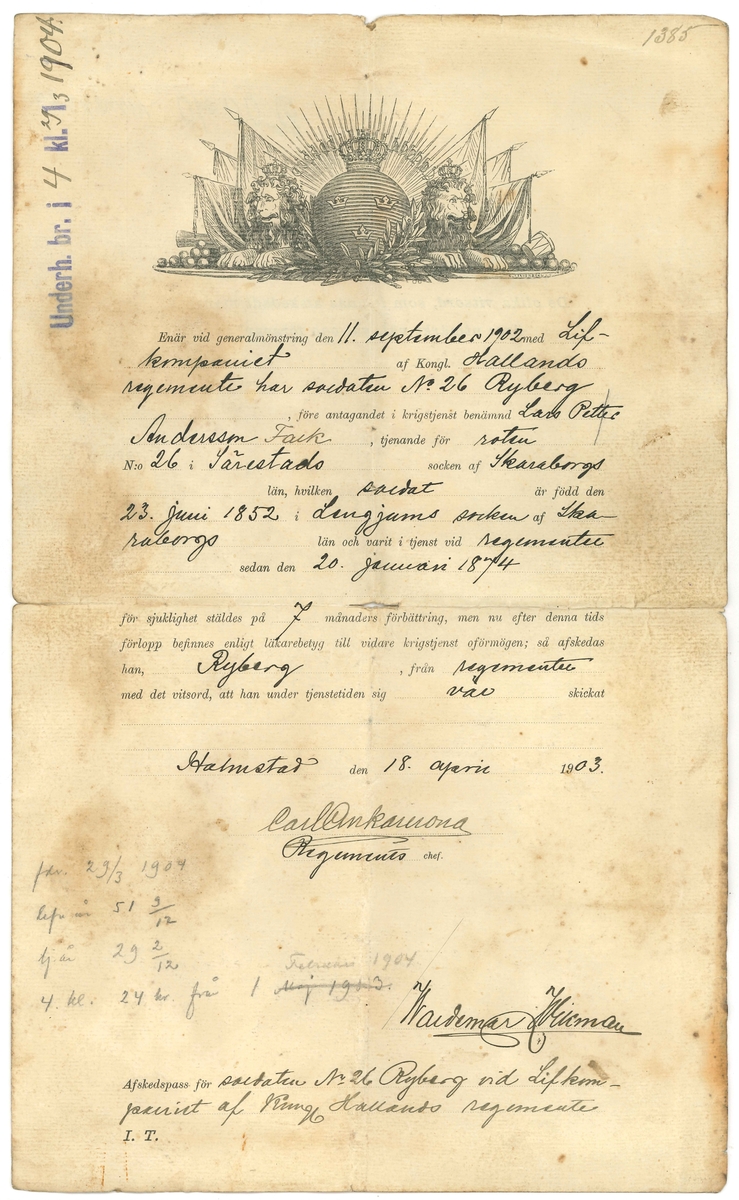 1385
Underh. br. i 4 kl. 29/3 1904.
Enär vid generalmönstring den 11. september 1902 med Lif-
kompaniet af Kongl. Hallands
regemente har soldaten No 26 Ryberg
, före antagandet i krigstjenst benämnd Lars Petter
Andersson Falk , tjenande för roten
N:o 26 i Särestads socken af Skaraborgs
län, hvilken soldat är född den
23. juni 1852 i Lengjums socken af Ska-
raborgs län och varit i tjenst vid regementet
sedan den 20. januari 1874
för sjuklighet stäldes på 7 månaders förbättring, men nu efter denna tids
förlopp befinnes enligt läkarebetyg till vidare krigstjenst oförmögen; så afskedas
han, Ryberg , från regementet
med det vitsord, att han under tjenstetiden sig väl skickat
Halmstad den 18. april 1903.
Carl Ankarcrona
Regements chef.
29/3 1904
51 9/12
tj. år 29 2/12
Februari 1904
4. kl. 24 kr. från 1 Maj 1903.
Waldemar Wikman
Afskedspass för soldaten No 26 Ryberg vid Lifkom-
paniet af Kungl. Hallands regemente
I. T.